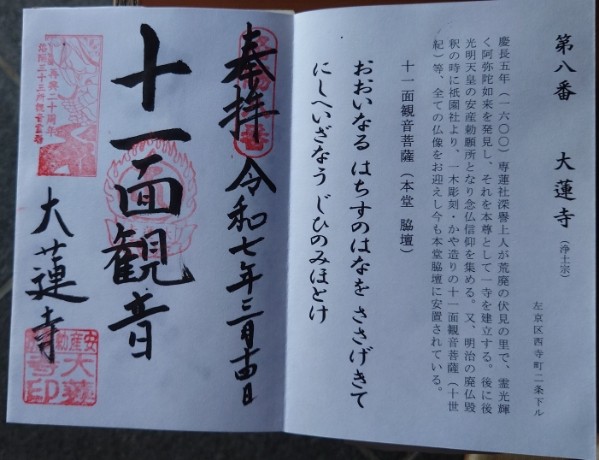 第八番　大蓮寺（浄土宗）
左京区西寺町二条下ル
慶長五年（一六〇〇）専蓮社深譽上人が荒廃の伏見の里で、霊光輝
く阿弥陀如来を発見し、それを本尊として一寺を建立する。後に後
光明天皇の安産勅願所となり念仏信仰を集める。又、明治の廃仏毀
釈の時に祇園社より、一木彫刻・かや造りの十一面観音菩薩（十世
紀）等、全ての仏像をお迎えし今も本堂脇壇に安置されている。
十一面観音菩薩（本堂　脇壇）
おおいなる はちすのはなを ささげきて
にしへいざなう じひのみほとけ
奉拝　令和七年三月十四日
十一面観音
大蓮寺
再興二十周年
洛陽三十三所観音霊場
安産勅
大蓮
寺印